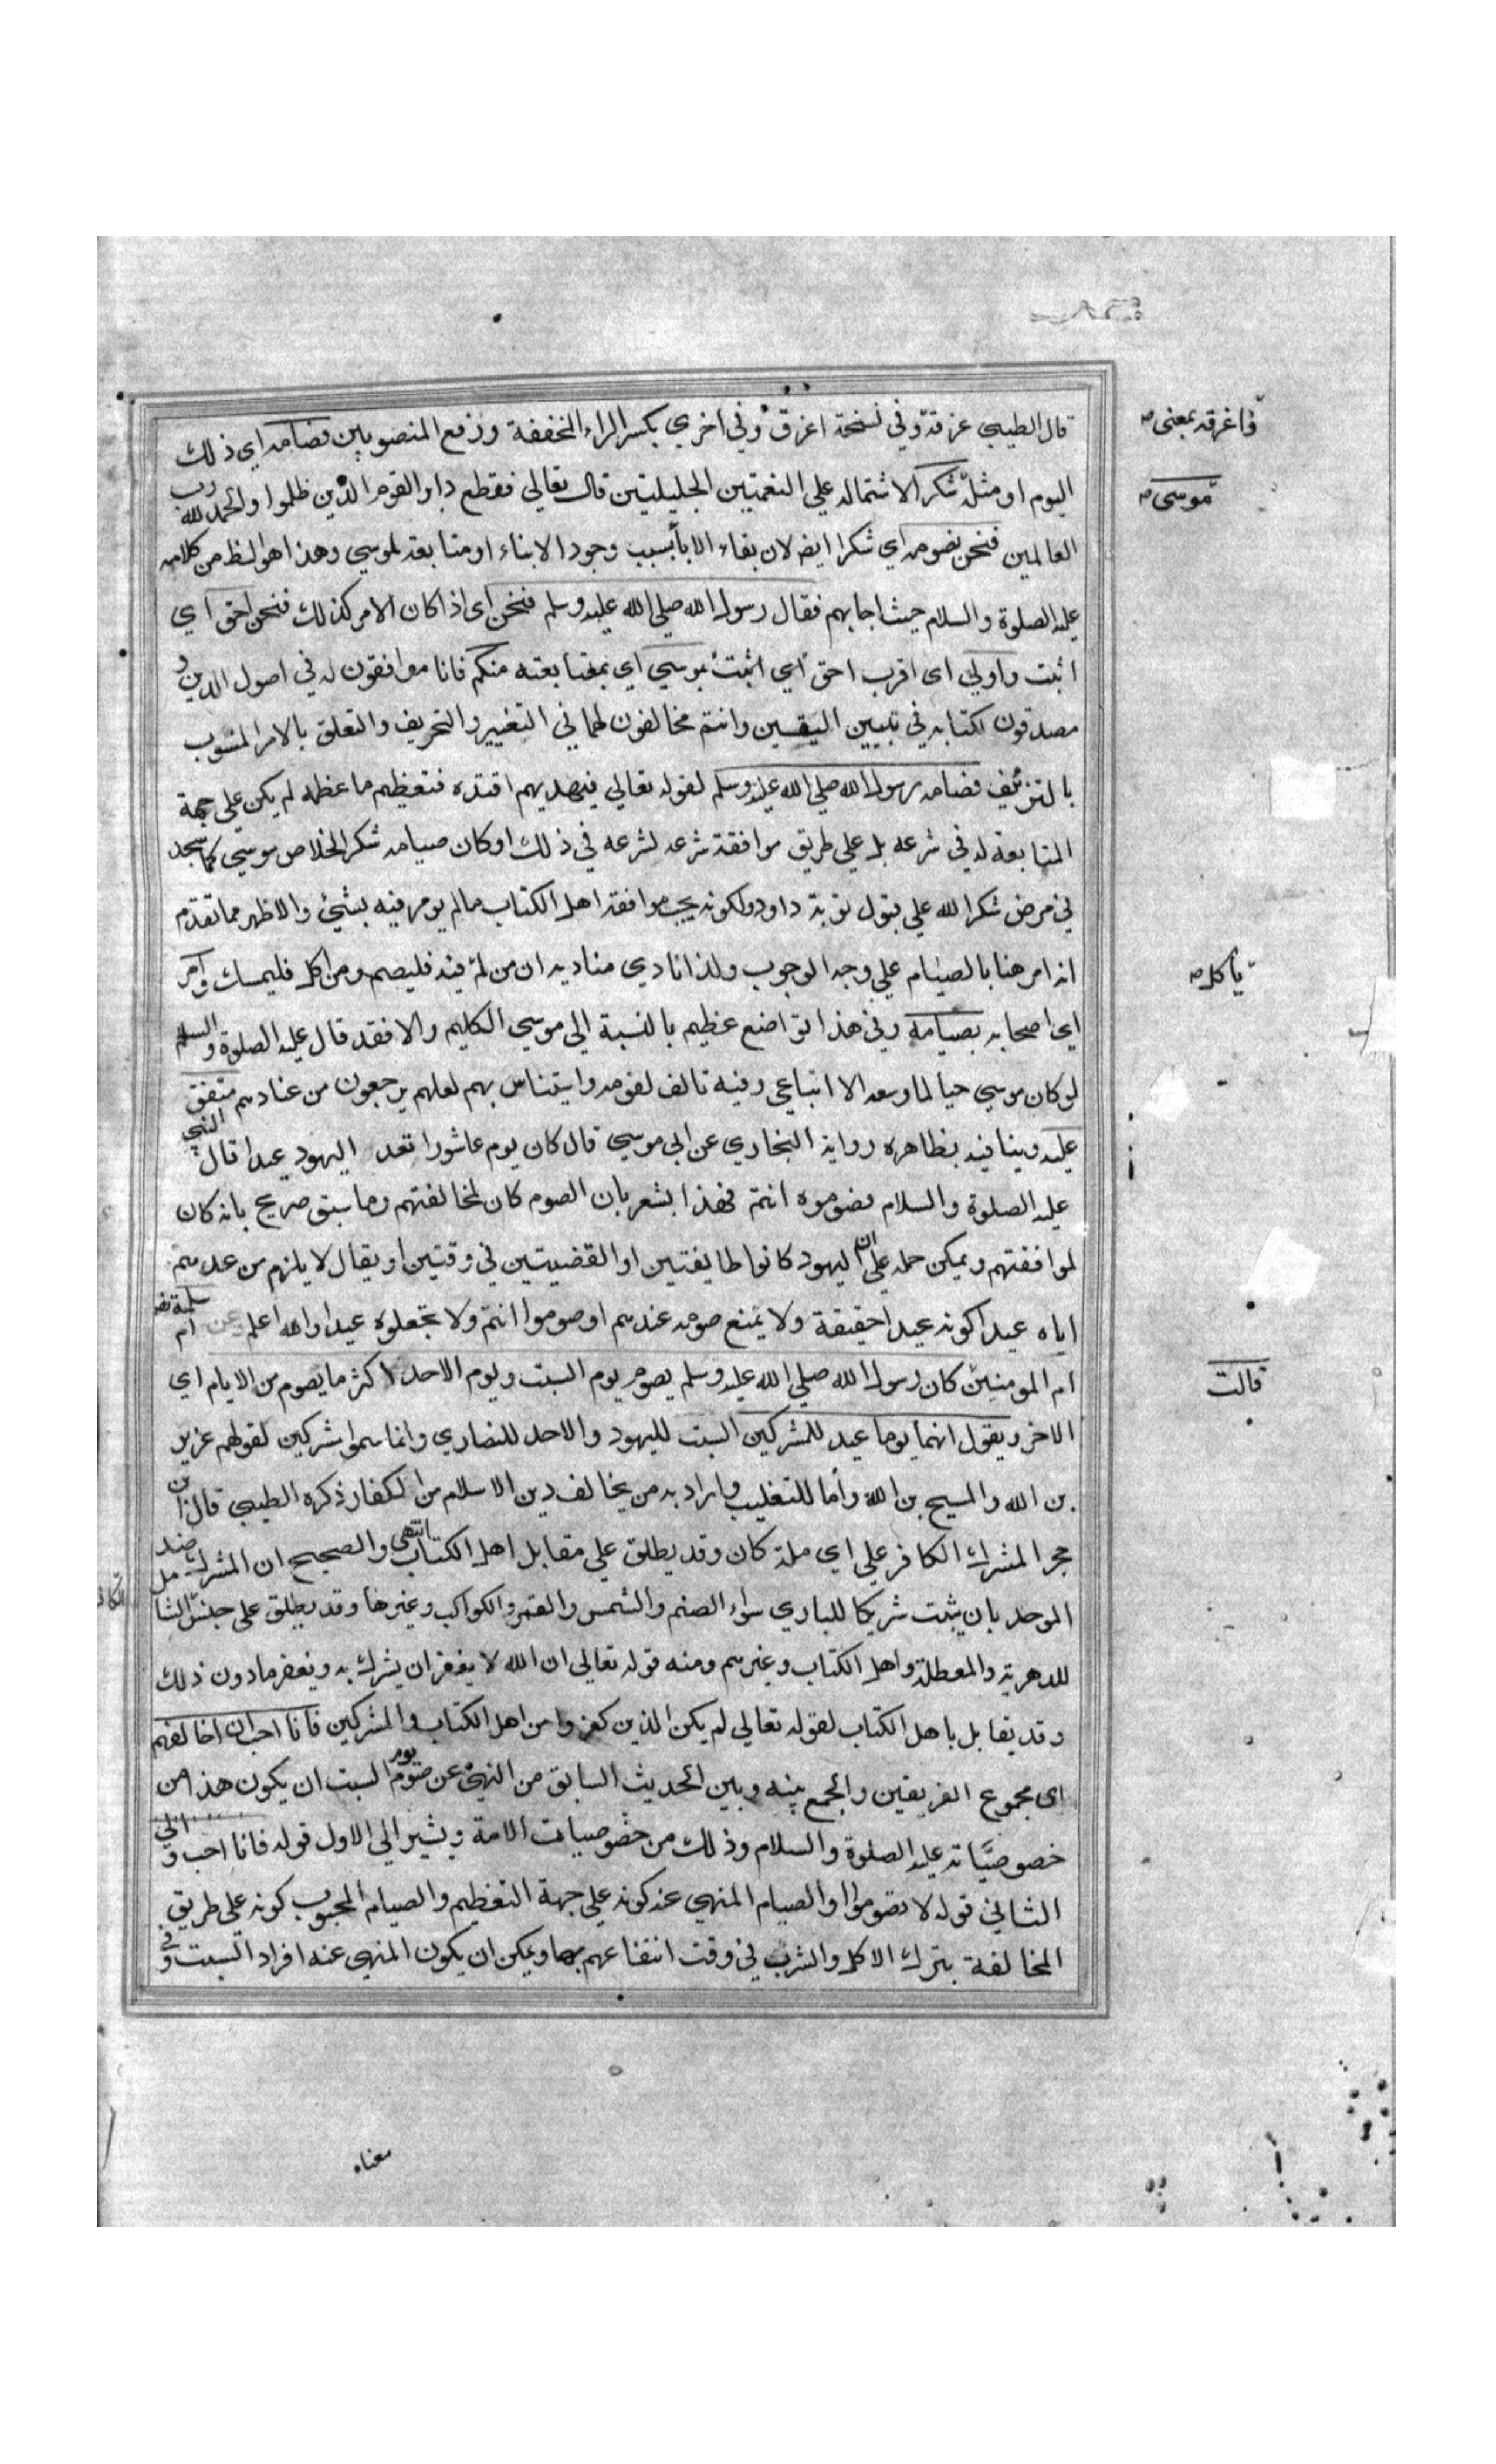 قال الطيبي غرقه وفي نسخة اغرق وفي اخري بكسر الراء المخففة ورفع المنصوبين فصامه اي ذلك
واغرقه بمعني صح
اليوم او مثله شكرا لاشتماله علي النعمتين الجليلتين قال تعالي فقطع دابر القوم الذين ظلموا والحمد لله رب
موسى صح
العالمين فنحن نصومه اي شكرا ايضا لان بقاء الابا بسبب وجود الابناء او متابعة لموسي وهذا هو الظ من كلامه
عليه الصلوة والسلام حيث اجابهم فقال رسول الله صلي الله عليه وسلم فنحن اى اذا كان الامر كذلك فنحن احق اي
اثبت واولي اى اقرب احق اي اثبت بموسي اي بمتابعته منكم فانا موافقون له في اصول الدين و
مصدقون لكتابه في تبيين اليقين وانتم مخالفون لهما في التغيير والتحريف والتعلق بالامر المشوب
بالتزئيف فصامه رسول الله صلي الله عليه وسلم لقوله تعالي فبهديهم اقتده فتعظيم ما عظمه لم يكن علي جهة
المتابعة له في شرعه بل علي طريق موافقة شرعه لشرعه في ذلك او كان صيامه شكرا لخلاص موسي كما سجد
في ص شكرا لله علي قبول توبة داود ولكونه يحب موافقة اهل الكتاب مالم يومر فيه بشئ والاظهر مما تقدم
انه امر هنا بالصيام علي وجه الوجوب ولذا نادي مناديه ان من لم فيه فليصم ومن اكل فليمسك وامر
ياكل صح
اي اصحابه بصيامه وفي هذا تواضع عظيم بالنسبة الي موسي الكليم والا فقد قال عليه الصلوة والسلام
لو كان موسي حيا لما وسعه الا اتباعي وفيه تالف لقومه واستيناس بهم لعلهم يرجعون من عنادهم متفق
عليه وينافيه بظاهره رواية البخاري عن ابي موسي قال كان يوم عاشورا تعد اليهود عيدا قال النبي
عليه الصلوة والسلام فصوموه انتم فهذا يشعر بان الصوم كان لمخالفتهم وما سبق صريح بانه كان
لموافقتهم ويمكن حمله علي ان اليهود كانوا طايفتين او القضيتين في وقتين او يقال لا يلزم من عدهم
اياه عيدا كونه عيدا حقيقة ولا يمنع صومه عندهم او صوموا انتم ولا تجعلوه عيدا والله اعلم عن ام سلمة
ام المومنين كان رسول الله صلي الله عليه وسلم يصوم يوم السبت ويوم الاحد اكثر ما يصوم من الايام اي
قالت
الاخر ويقول انهما يوما عيد للمشركين السبت لليهود والاحد للنصاري وانما سموا مشركين لقولهم عزير
بن الله والمسيح بن الله وأما للتغليب واراد به من يخالف دين الاسلام من الكفار ذكره الطيبي قال ابن
حجر المشرك الكافر علي اي ملة كان وقد يطلق علي مقابل اهل الكتاب انتهي والصحيح ان المشرك ضد
الموحد بان يثبت شريكا للباري سواء الصنم والشمس والقمر والكواكب وغيرها وقد يطلق على جنس الشامل
للدهرية والمعطلة واهل الكتاب وغيرهم ومنه قوله تعالي ان الله لا يغفر ان يشرك به ويغفر مادون ذلك
وقد يقابل باهل الكتاب لقوله تعالي لم يكن الذين كفروا من اهل الكتاب والمشركين فانا احب ان اخالفهم
اى مجموع الفريقين والجمع بينه وبين الحديث السابق من النهي عن صوم يوم السبت ان يكون هذا من
خصوصيَّاته عليه الصلوة والسلام وذلك من خصوصيات الامة ويشير الي الاول قوله فانا احب والي
الثاني قوله لا تصوموا او الصيام المنهي عنه كونه علي جهة التعظيم والصيام المحبوب كونه علي طريق
المخالفة بترك الاكل والشرب في وقت انتفاعهم بهما ويمكن ان يكون المنهي عنه افراد السبت وفي
معناه